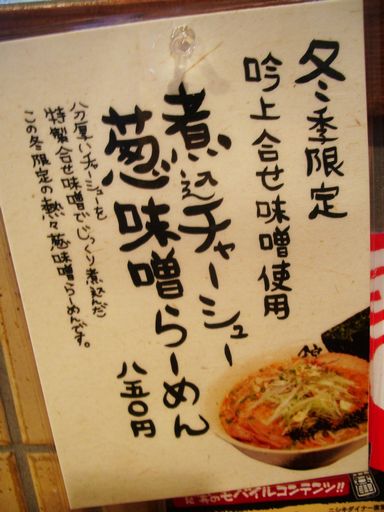 冬季限定
吟上合せ味噌使用
煮込チャーシュー
葱味噌らーめん
八五〇円
八刀厚いチャーシューを
特製合せ味噌でじっくり煮込んだ
この冬限定の熱々葱味噌らーめんです。
モバイルコンテンツ!!
ニシキダイナー